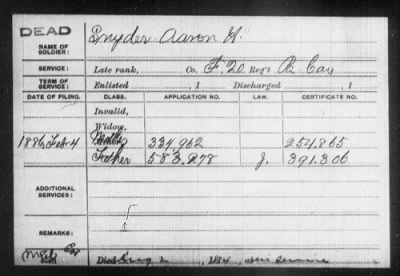 DEAD
NAME OF SOLDIER: Snyder Aaron H.
SERVICE: Late rank, Co. F, 20 Reg't Pa Cav
TERM OF SERVICE: Enlisted , 1 Discharged , 1
DATE OF FILING. CLASS. APPLICATION NO. LAW. CERTIFICATE NO.
Invalid,
Widow,
1886, Feb 4 334,962 254,865
Father 583,278 J. 391,306
ADDITIONAL SERVICES:
REMARKS:
Died Aug 2